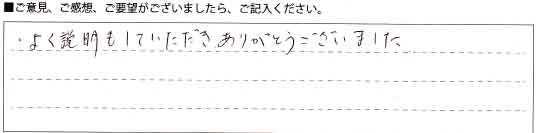 ■ご意見、ご感想、ご要望がございましたら、ご記入ください。
・よく説明もしていただきありがとうございました